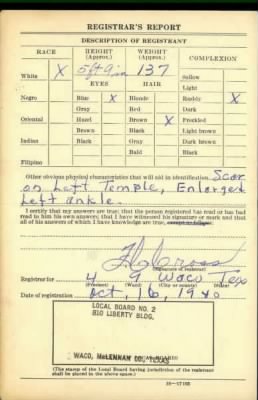 REGISTRAR'S REPORT
DESCRIPTION OF REGISTRANT
RACE HEIGHT (Approx.) WEIGHT (Approx.) COMPLEXION
White X 5 ft 9 in 137 Sallow
EYES HAIR Light
Negro Blue X Blonde Ruddy X
Gray Red Dark
Oriental Hazel Brown X Freckled
Brown Black Light brown
Indian Black Gray Dark brown
Bald Black
Filipino
Other obvious physical characteristics that will aid in identification Scar
on Left Temple, Enlarged
Left ankle.
I certify that my answers are true; that the person registered has read or has had
read to him his own answers; that I have witnessed his signature or mark and that
all of his answers of which I have knowledge are true, except as follows:
Cross
(Signature of registrar)
Registrar for 4 9 Waco Tex
(Precinct) (Ward) (City or county) (State)
Date of registration Oct 16, 1940
LOCAL BOARD NO. 2
BIO LIBERTY BLDG.
WACO, McLENNAN CO., TEXAS
(The stamp of the Local Board having jurisdiction of the registrant
shall be placed in the above space.)